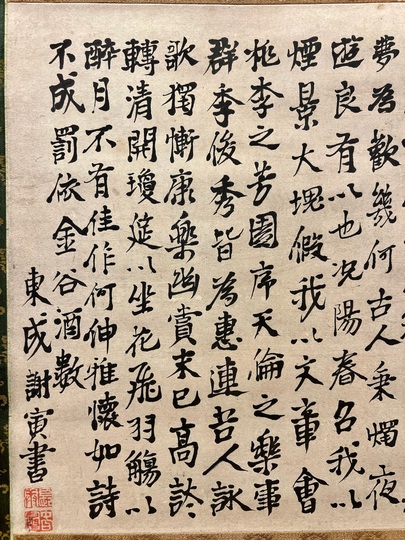 夢為歡幾何古人秉燭夜
遊良有以也况陽春召我以
煙景大塊假我以文章會
桃李之芳園序天倫之樂事
群季俊秀皆為惠連吾人詠
歌獨慚康樂幽賞未已高談
轉清開瓊筵以坐花飛羽觴以
醉月不有佳作何伸雅懷如詩
不成罰依金谷酒數
東成謝寅書